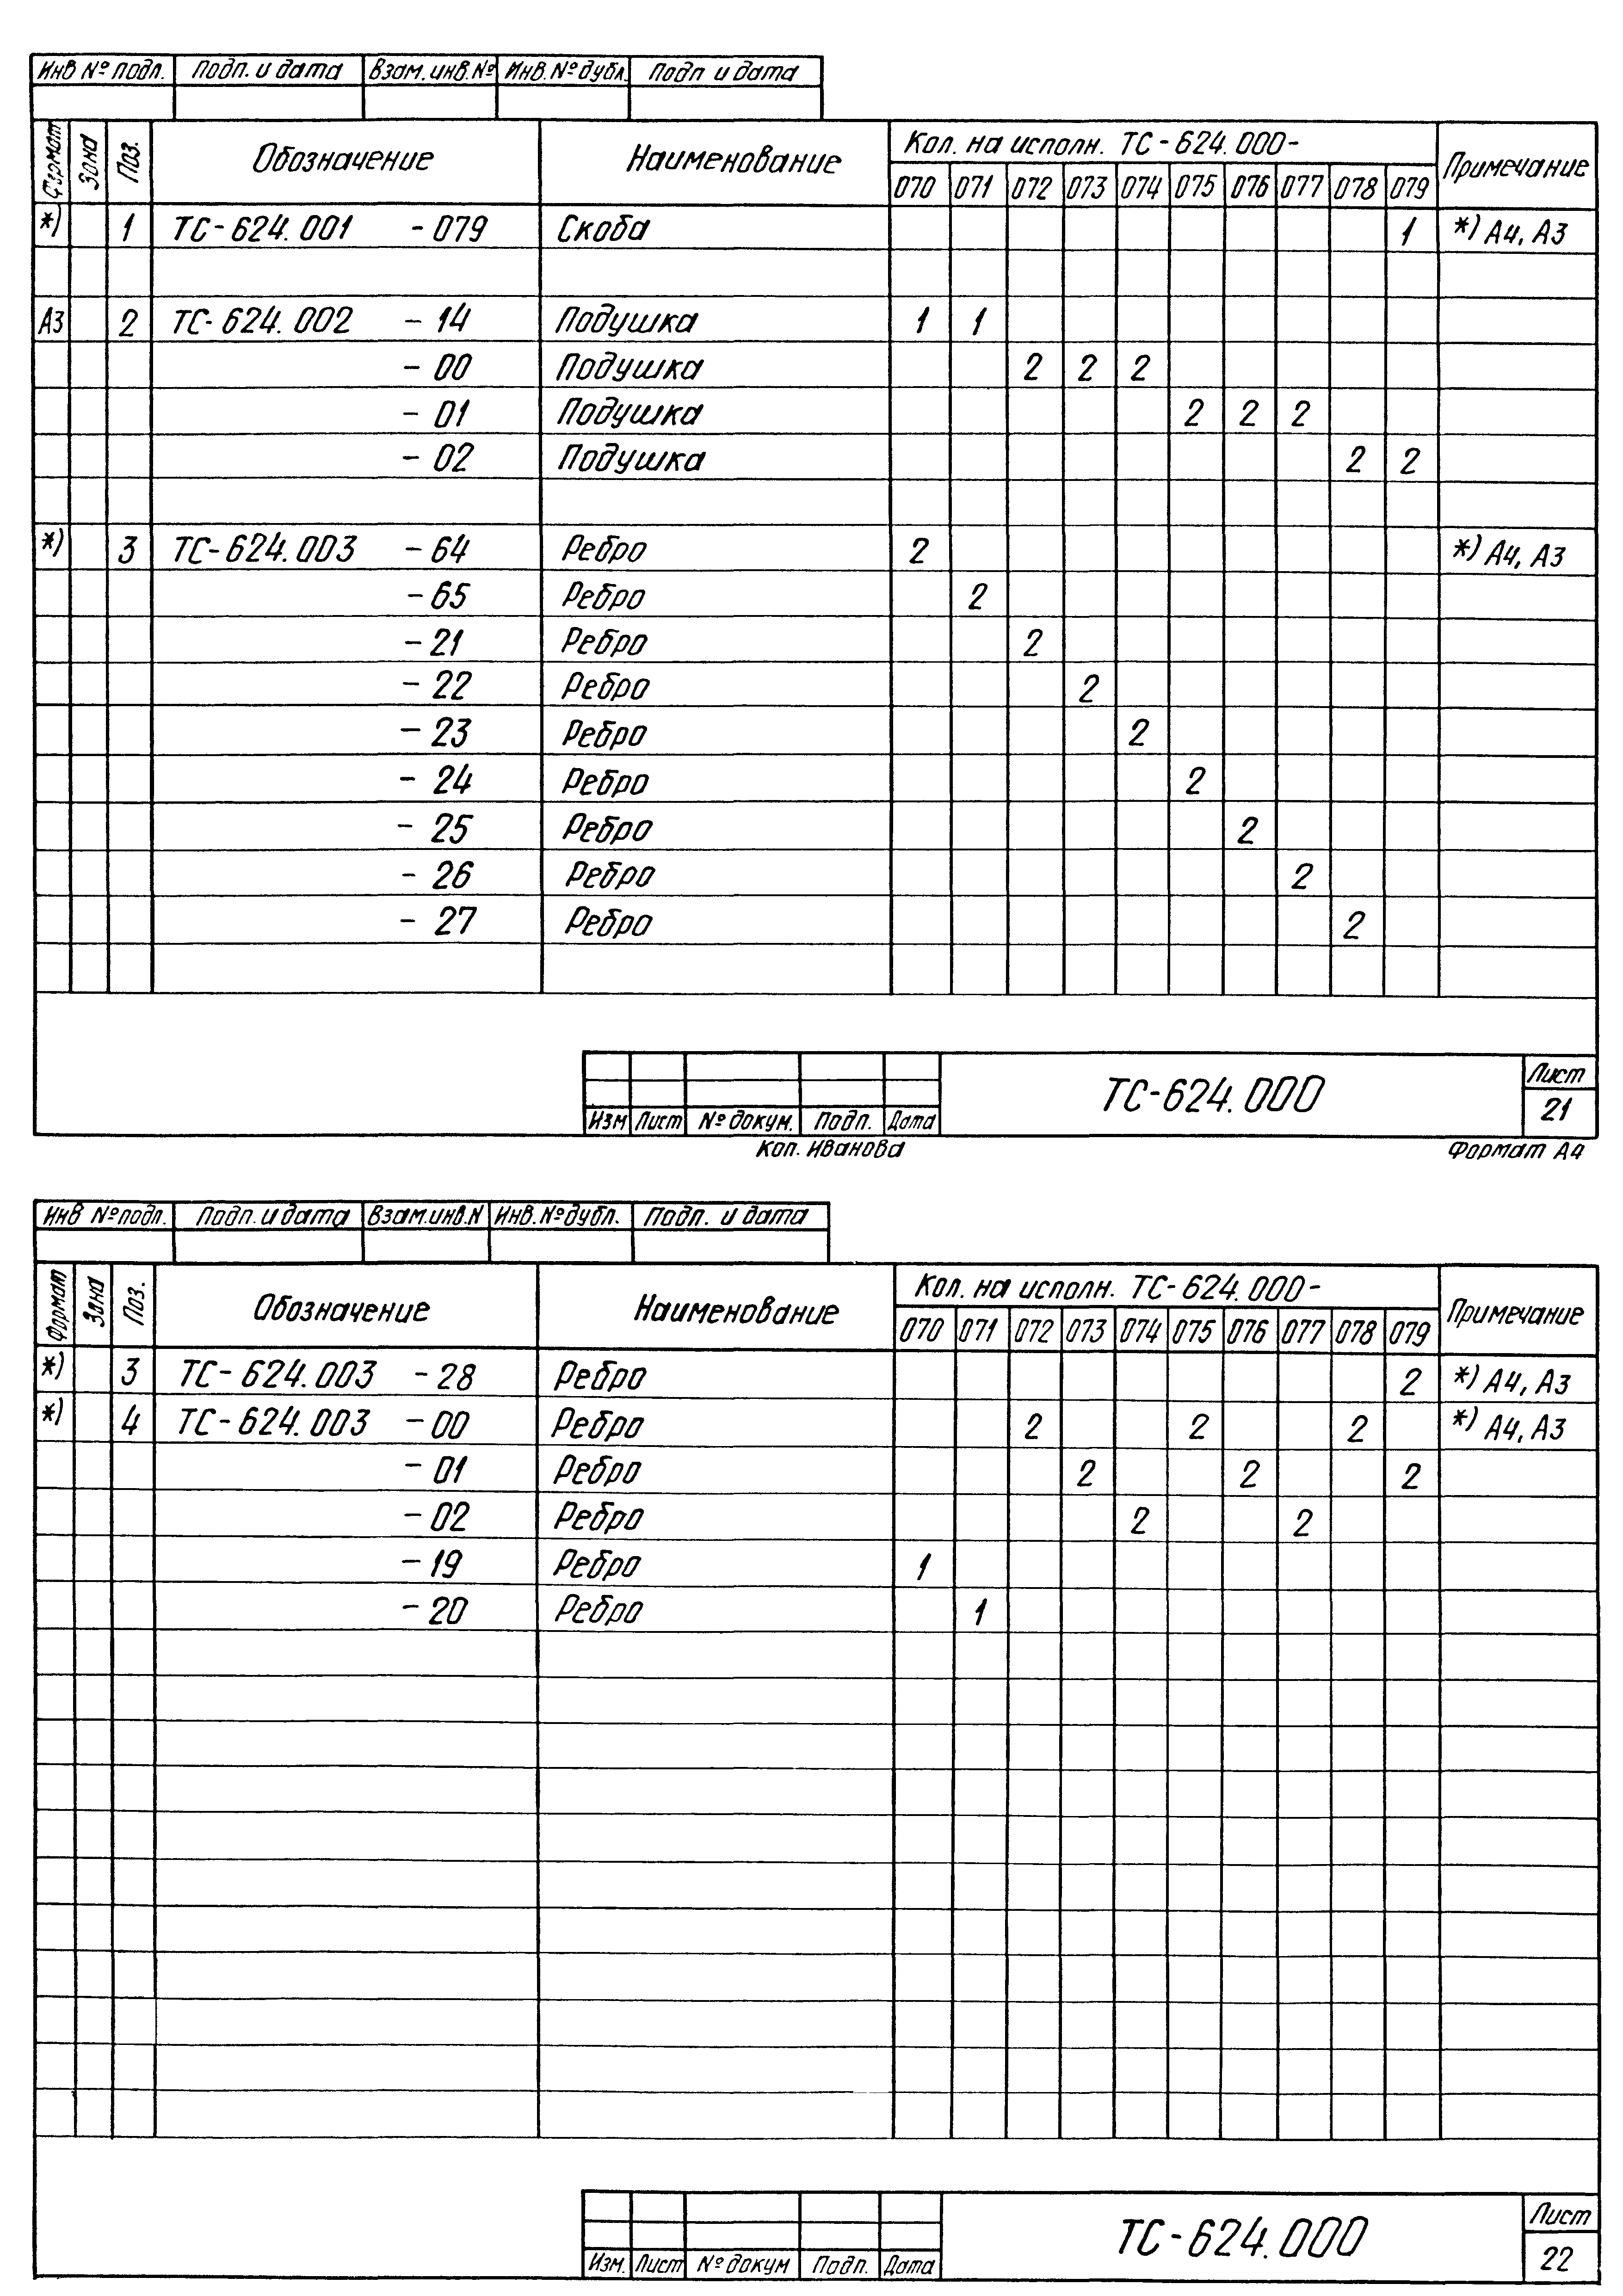 Инв № подл. Подп. и дата Взам. инв. № Инв. № дубл. Подп и дата
Формат Зона Поз. Обозначение Наименование Кол. на исполн. ТС-624.000- Примечание
070 071 072 073 074 075 076 077 078 079
*) 1 ТС-624.001 -079 Скоба 1 *) А4, А3
А3 2 ТС-624.002 -14 Подушка 1 1
-00 Подушка 2 2 2
-01 Подушка 2 2 2
-02 Подушка 2 2
*) 3 ТС-624.003 -64 Ребро 2 *) А4, А3
-65 Ребро 2
-21 Ребро 2
-22 Ребро 2
-23 Ребро 2
-24 Ребро 2
-25 Ребро 2
-26 Ребро 2
-27 Ребро 2
Изм Лист № докум. Подп. Дата ТС-624.000 Лист
21
Коп. Иванова Формат А4
Инв № подл. Подп. и дата Взам.инв.N Инв. № дубл. Подп. и дата
Формат Зона Поз. Обозначение Наименование Кол. на исполн. ТС-624.000- Примечание
070 071 072 073 074 075 076 077 078 079
*) 3 ТС-624.003 -28 Ребро 2 *) А4, А3
*) 4 ТС-624.003 -00 Ребро 2 2 2 *) А4, А3
-01 Ребро 2 2 2
-02 Ребро 2 2
-19 Ребро 1
-20 Ребро 1
Изм. Лист № докум Подп. Дата ТС-624.000 Лист
22